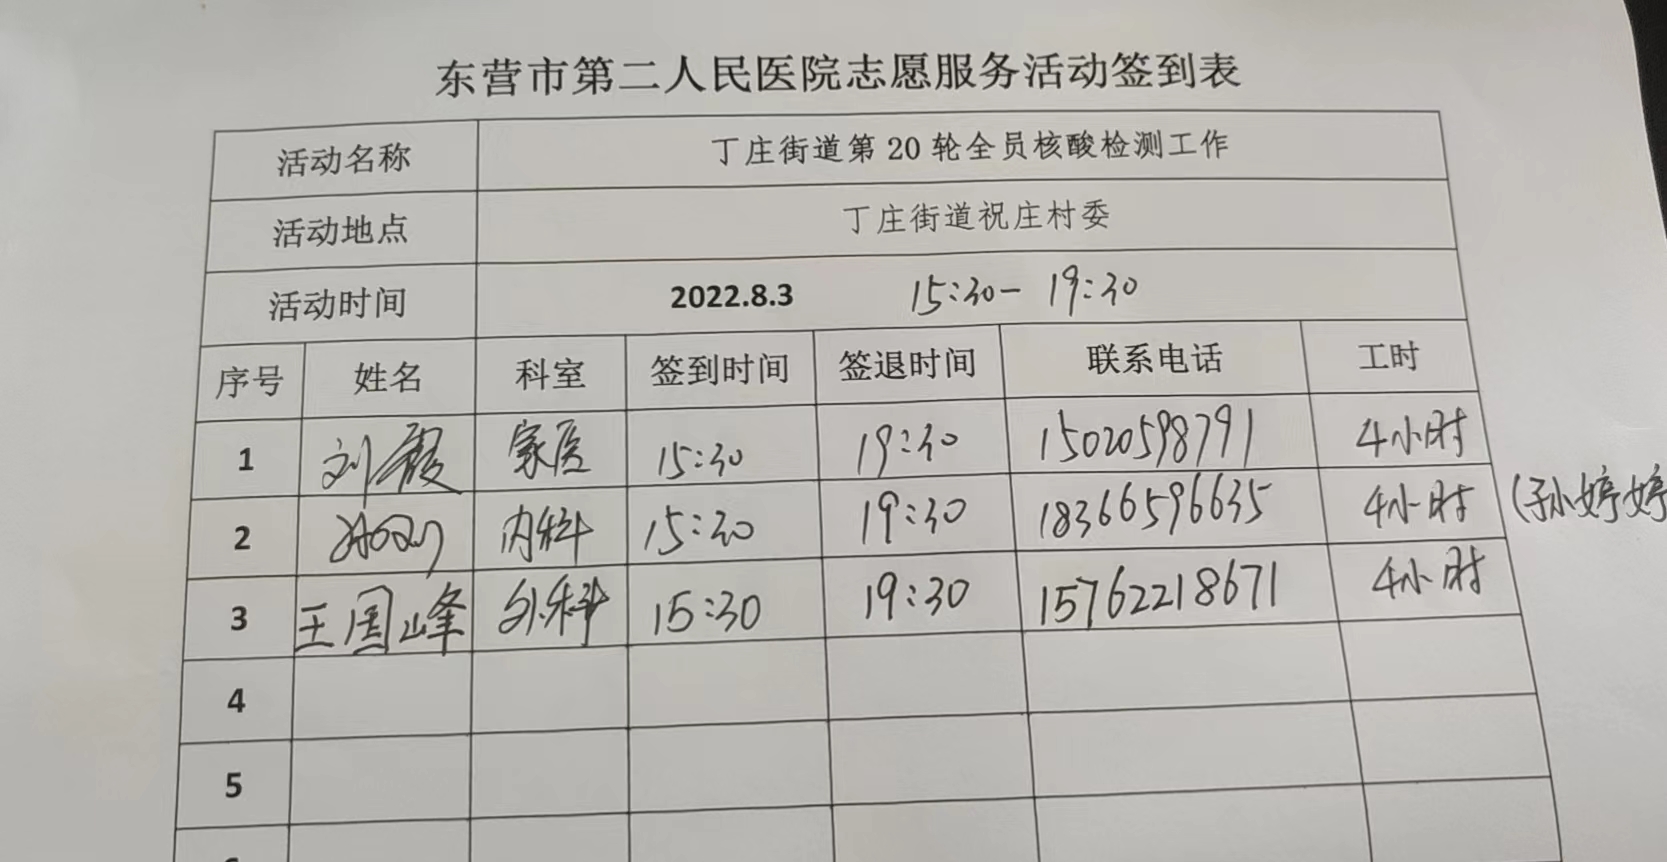 东营市第二人民医院志愿服务活动签到表
活动名称 丁庄街道第20轮全员核酸检测工作
活动地点 丁庄街道祝庄村委
活动时间 2022.8.3 15:30- 19:30
序号 姓名 科室 签到时间 签退时间 联系电话 工时
1 刘霞 家医 15:30 19:30 15020598791 4小时
2 内科 15:30 19:30 18366596635 4小时 (孙婷婷
3 王国峰 外科 15:30 19:30 15762218671 4小时
4
5